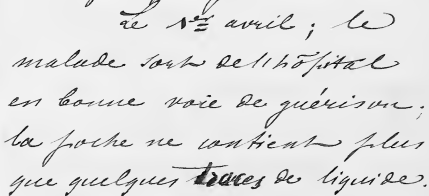 Le 1er avril ; le
malade sort de l'hôpital
en bonne voie de guérison ;
la poche ne contient plus
que quelques traces de liquide.